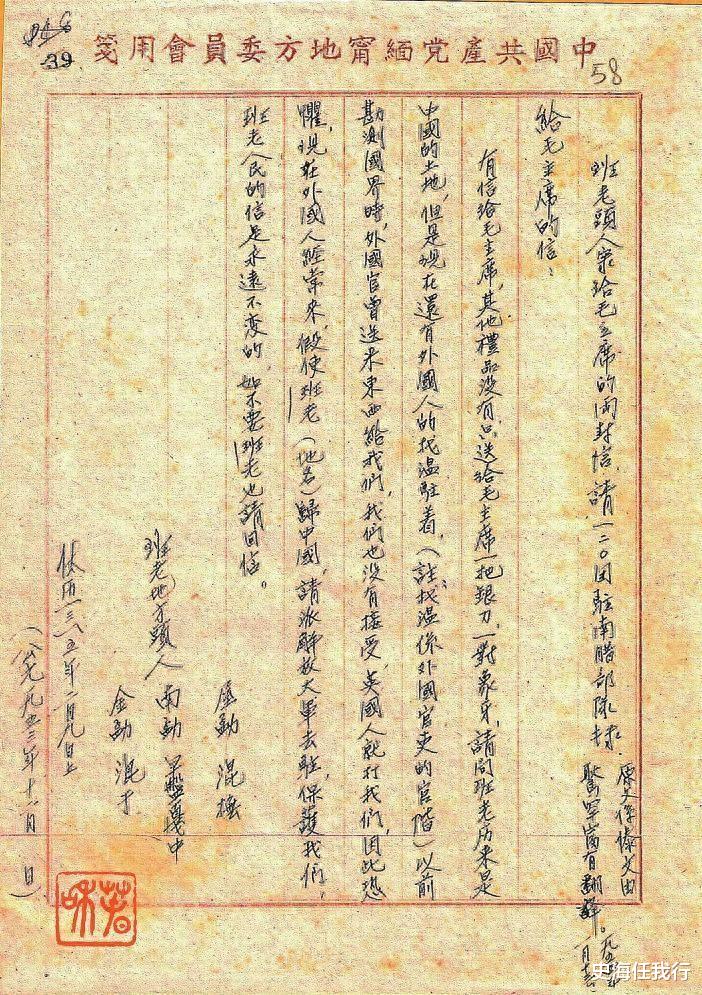 中國共產党緬甯地方委員會用箋
39
58
班老頭人宗給毛主席的兩封信，請一二〇团駐南腊部隊
原文係傣文由
有翻譯。
給毛主席的信：
有信給毛主席，其他禮品没有只送給毛主席一把銀刀，一對象牙，請問班老历来是
中國的土地，但是現在還有外國人的找温駐着，（註：找温係外國官吏的官階）以前
勘測國界時，外國官曾送米東西給我們，我們也没有接受，英國人就打我們，因此恐
懼，現在外國人經常來，假使班老（地名）歸中國，請派解放大軍去駐，保護我們。
班老人民的信是永遠不变的，如不要班老也請回信。
混撫
班老地方頭人
南勐
混寸
傣历一三八五年一月九日上
（公元一九五三年十一月 日）
史海任我行